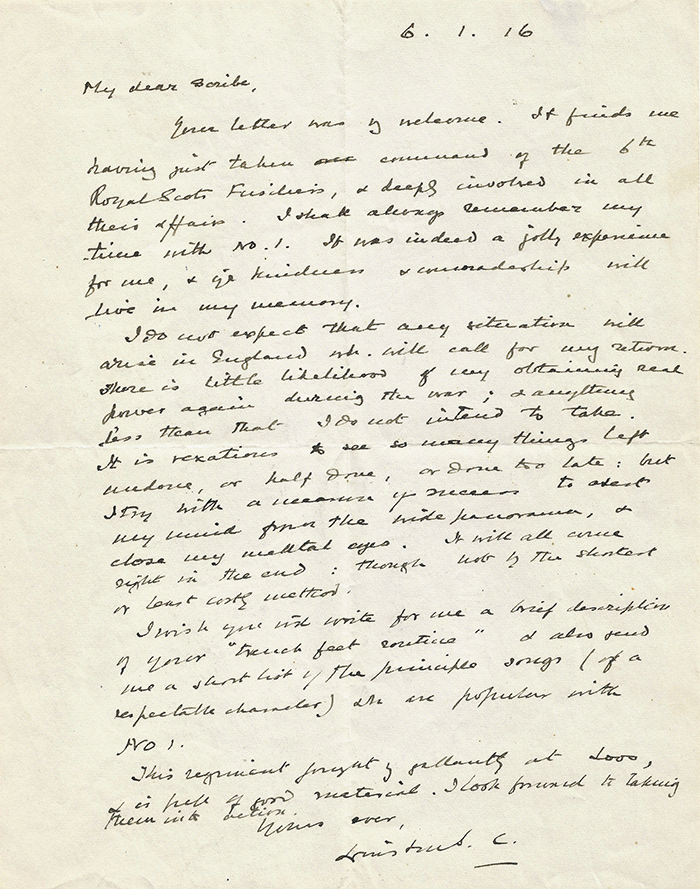 6. 1. 16
My dear Scribe,
Your letter was vy welcome. It finds me
having just taken command of the 6th
Royal Scots Fusiliers, & deeply involved in all
their affairs. I shall always remember my
time with No. 1. It was indeed a jolly experience
for me, & yr kindness & comradeship will
live in my memory.
I do not expect that any situation will
arise in England wh. will call for my return.
There is little likelihood of my obtaining real
power again during the war; & anything
less than that I do not intend to take.
It is vexatious to see so many things left
undone, or half done, or done too late: but
I try with a measure of success to
my mind from the wide panorama, &
close my mental eyes. It will all come
right in the end: though not by the shortest
or least costly method.
I wish you wd write for me a brief description
of your "trench feet routine" & also send
me a short list of the principle songs (of a
respectable character) wh are popular with
No 1.
This regiment fought vy gallantly at Loos,
& is full of good material. I look forward to taking
them into action.
Yours ever,
Winston S. C.